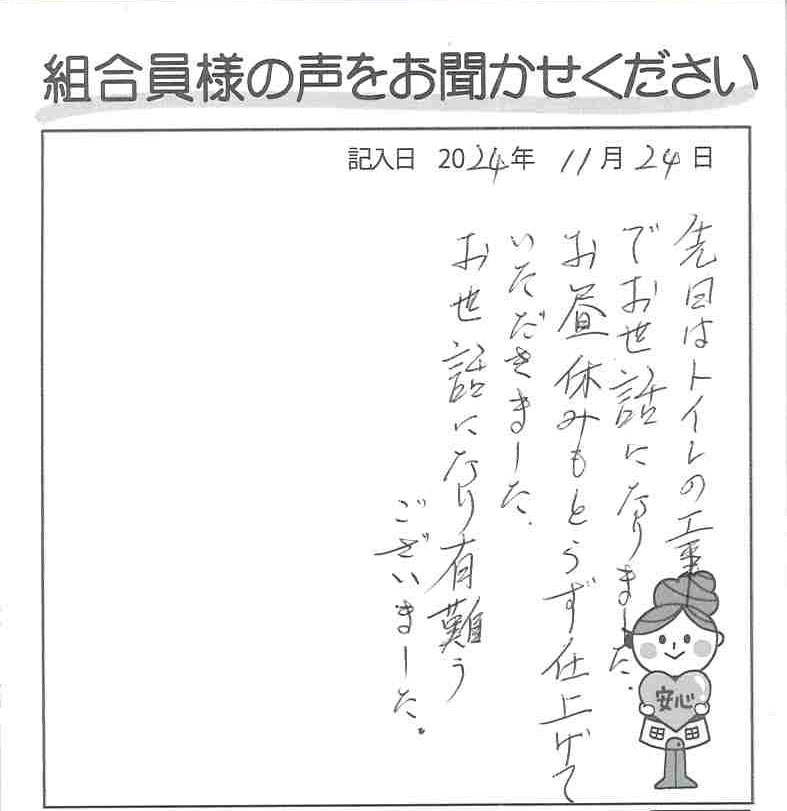 組合員様の声をお聞かせください
記入日 2024年 11月24日
先日はトイレの工事
でお世話になりました.
お昼休みもとらず仕上げて
いただきました.
お世話になり有難う
ございました。
安心